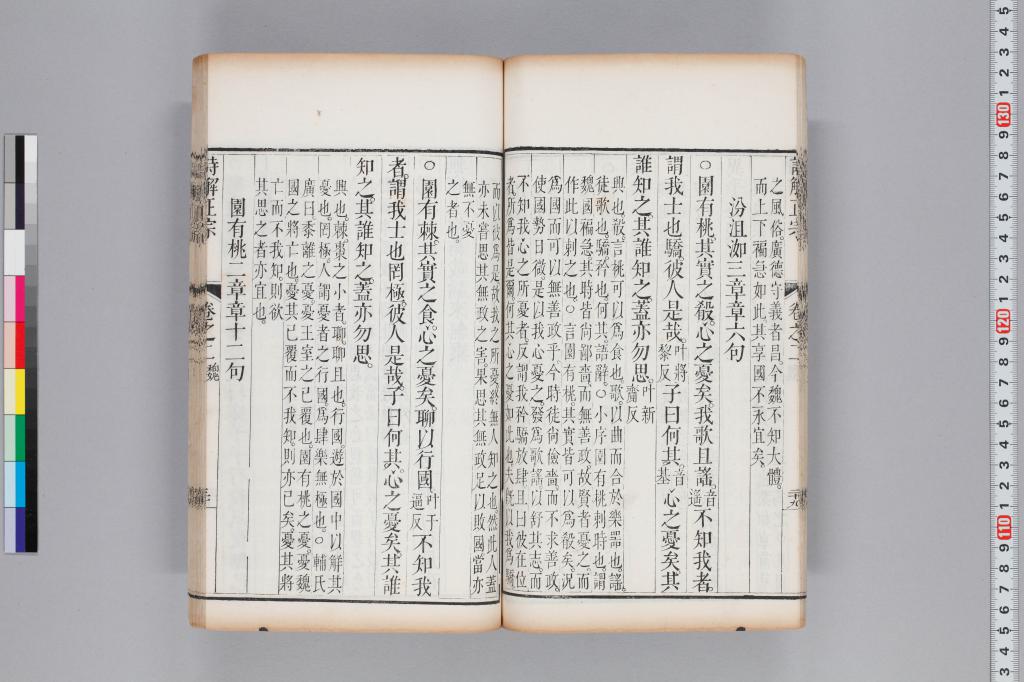 之風俗廣德守義者昌今魏不知大體
而上下褊急如此其享國不永宜矣
汾沮洳三章章六句
○園有桃其實之殽心之憂矣我歌且謠音遙不知我者
謂我士也驕彼人是哉叶將黎反子曰何其音基心之憂矣其
誰知之其誰知之蓋亦勿思叶新齎反
興也殽言桃可以為食也歌以曲而合於樂器也謠
徒歌也驕矜也何其語辭○小序園有桃刺時也謂
魏國褊急其時皆尚鄙嗇而無善政故賢者憂之而
作此以刺之也○言園有桃其實皆可以為殽矣況
為國而可以無善政乎今時徒尚儉嗇而不求善政
使國勢日微是以我心憂之發為歌謠以舒其志而
不知我心之所憂者反謂我矜驕放肆且曰彼在位
者所為皆是爾何其心之憂如此也夫既以我為驕
而以彼為是故我之所憂終無人知之也然此人蓋
亦未嘗思其無政之害果思其無政足以敗國當亦
無不憂
之者也
○園有棘其實之食心之憂矣聊以行國叶于逼反不知我
者謂我士也罔極彼人是哉子曰何其心之憂矣其誰
知之其誰知之蓋亦勿思
興也棘棗之小者聊聊且也行國遊於國中以解其
憂也罔極人謂憂者之行國為肆樂無極也○輔氏
廣曰黍離之憂憂王室之已覆也園有桃之憂憂魏
國之將亡也憂其已覆而不我知則亦已矣憂其將
亡而不我知則欲
其思之者亦宜也
園有桃二章章十二句
詩解正宗
卷之二
魏